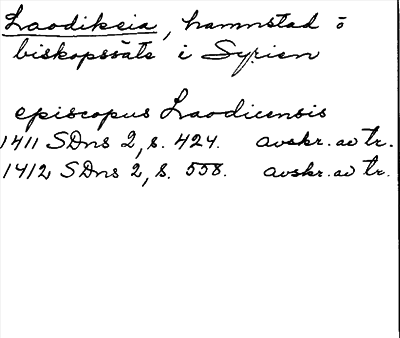 Laodikeia, hamnstad o
biskopssäte i Syrien
episcopus Laodicensis
1411 SDns 2, s. 424. avskr. av tr.
1412 SDns 2, s. 558. avskr. av tr.